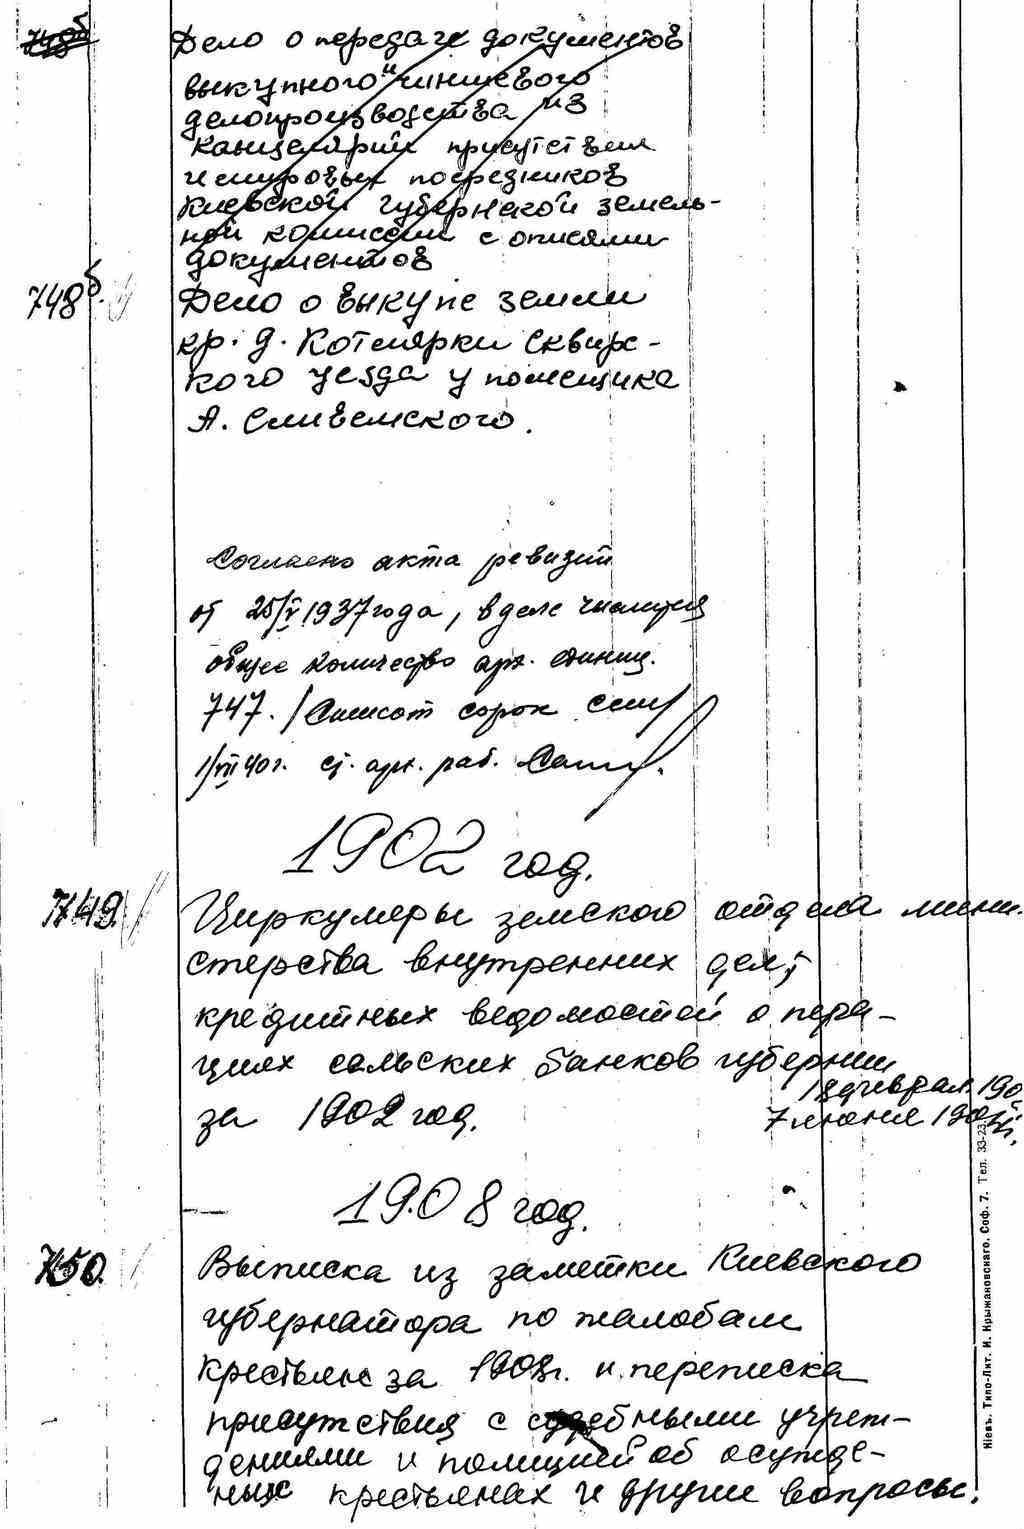 748б
Дело о передаче документов
выкупного и чиншевого
делопроизводства из
канцелярии присутствия
и мировых посредников
Киевской губернской земель-
ной комиссии с описями
документов
748б. Дело о выкупе земли
кр. д. Котлярки Сквирс-
кого уезда у помещика
А.
Согласно акта ревизии
от 25/V 1937 года, в деле числится
общее количество арх. единиц.
747. /Семьсот сорок семь/
1/VII 40 г. ст. арх. раб.
1902 год.
749. Циркуляры земского отдела мини-
стерства внутренних дел,
кредитных ведомостей о пера-
циях сельских банков губернии
за 1902 год.
18 феврал. 190
7 июня 190
1908 год.
750. Выписка из заметки Киевского
губернатора по жалобам
крестьян за 1908 г. и переписка
присутствия с судебными учреж-
дениями и полицией об осужде-
ных крестьянах и другие вопросы.
Кіевъ. Типо-Лит. И. Крыжановскаго. Соф. 7. Тел. 33-23.